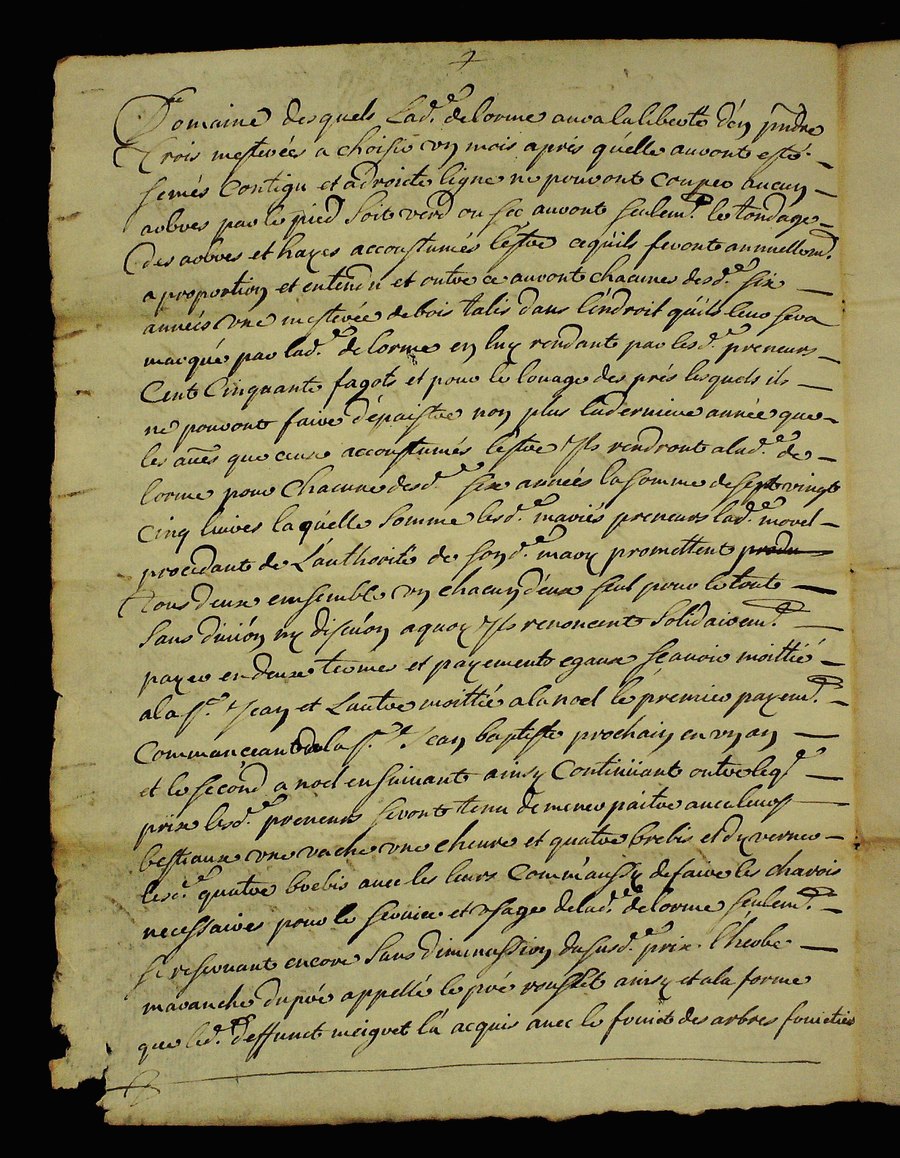 Domaine desquels Lad.e delorme aura la liberté d'en prndre
Trois mesterées a choisir un mois aprés qu'elle auront esté
semés Contigu et adroicte ligne ne pouront couper aucun
arbres par le pied soit verd ou sec auront seulem.t le tondage
des arbres et hayes accoustumés l'éstre ce qu'ils feront annuellem.t
a proportion et entend'n et outre ce auront chacunes desd.e six
années une mesterée de bois talis dans l'éndroit qu'ils leur sera
marqué par lad.e delorme en luy rendant par lesd.e preneurs
Cent Cinquante fagots et pour le louage des prés lesquels ils
ne pouront faire d'épaistre non plus la derniere année que
les aues que ceux accoustumés l'éstre ils rendront a lad.e de
lorme pour chacune desd.e six années la somme de sept vingt
Cinq livres laquélle somme lesd.e mariés preneurs lad.e morel
procedante de L'authorité de son d.e mary promettent
Tous deux ensemble un chacun d'eux seul pour le tout
sans divión ny discuón a quoy ils renoncent solidairem.t
payer en deux termes et payements egaux sçauoir moittié
a la s.t Jean et L'autre moittié a la noel le prémier payem.t
Commanceant de la s.t Jean baptiste prochain en un an
et le sécond a noel ensuivant ainsy Continüant outre leq.e
prix lesd.e preneurs seront tenu de mener paître auec leurs
bestiaux une vache une cheure et quatre brebis et dyverner
lesd.e quatre brebis auec les leurs Comm'aussy de faire les charois
necessaires pour le seruice et usage de lad.e delorme seulem.t
se reseruant encore sans diminussion du susd.e prix l'herbe
maranche du pré appellé le pré rousset ainsy et a la forme
que led.e deffunct meigret l'a acquis auec le fruict des arbres fruictier